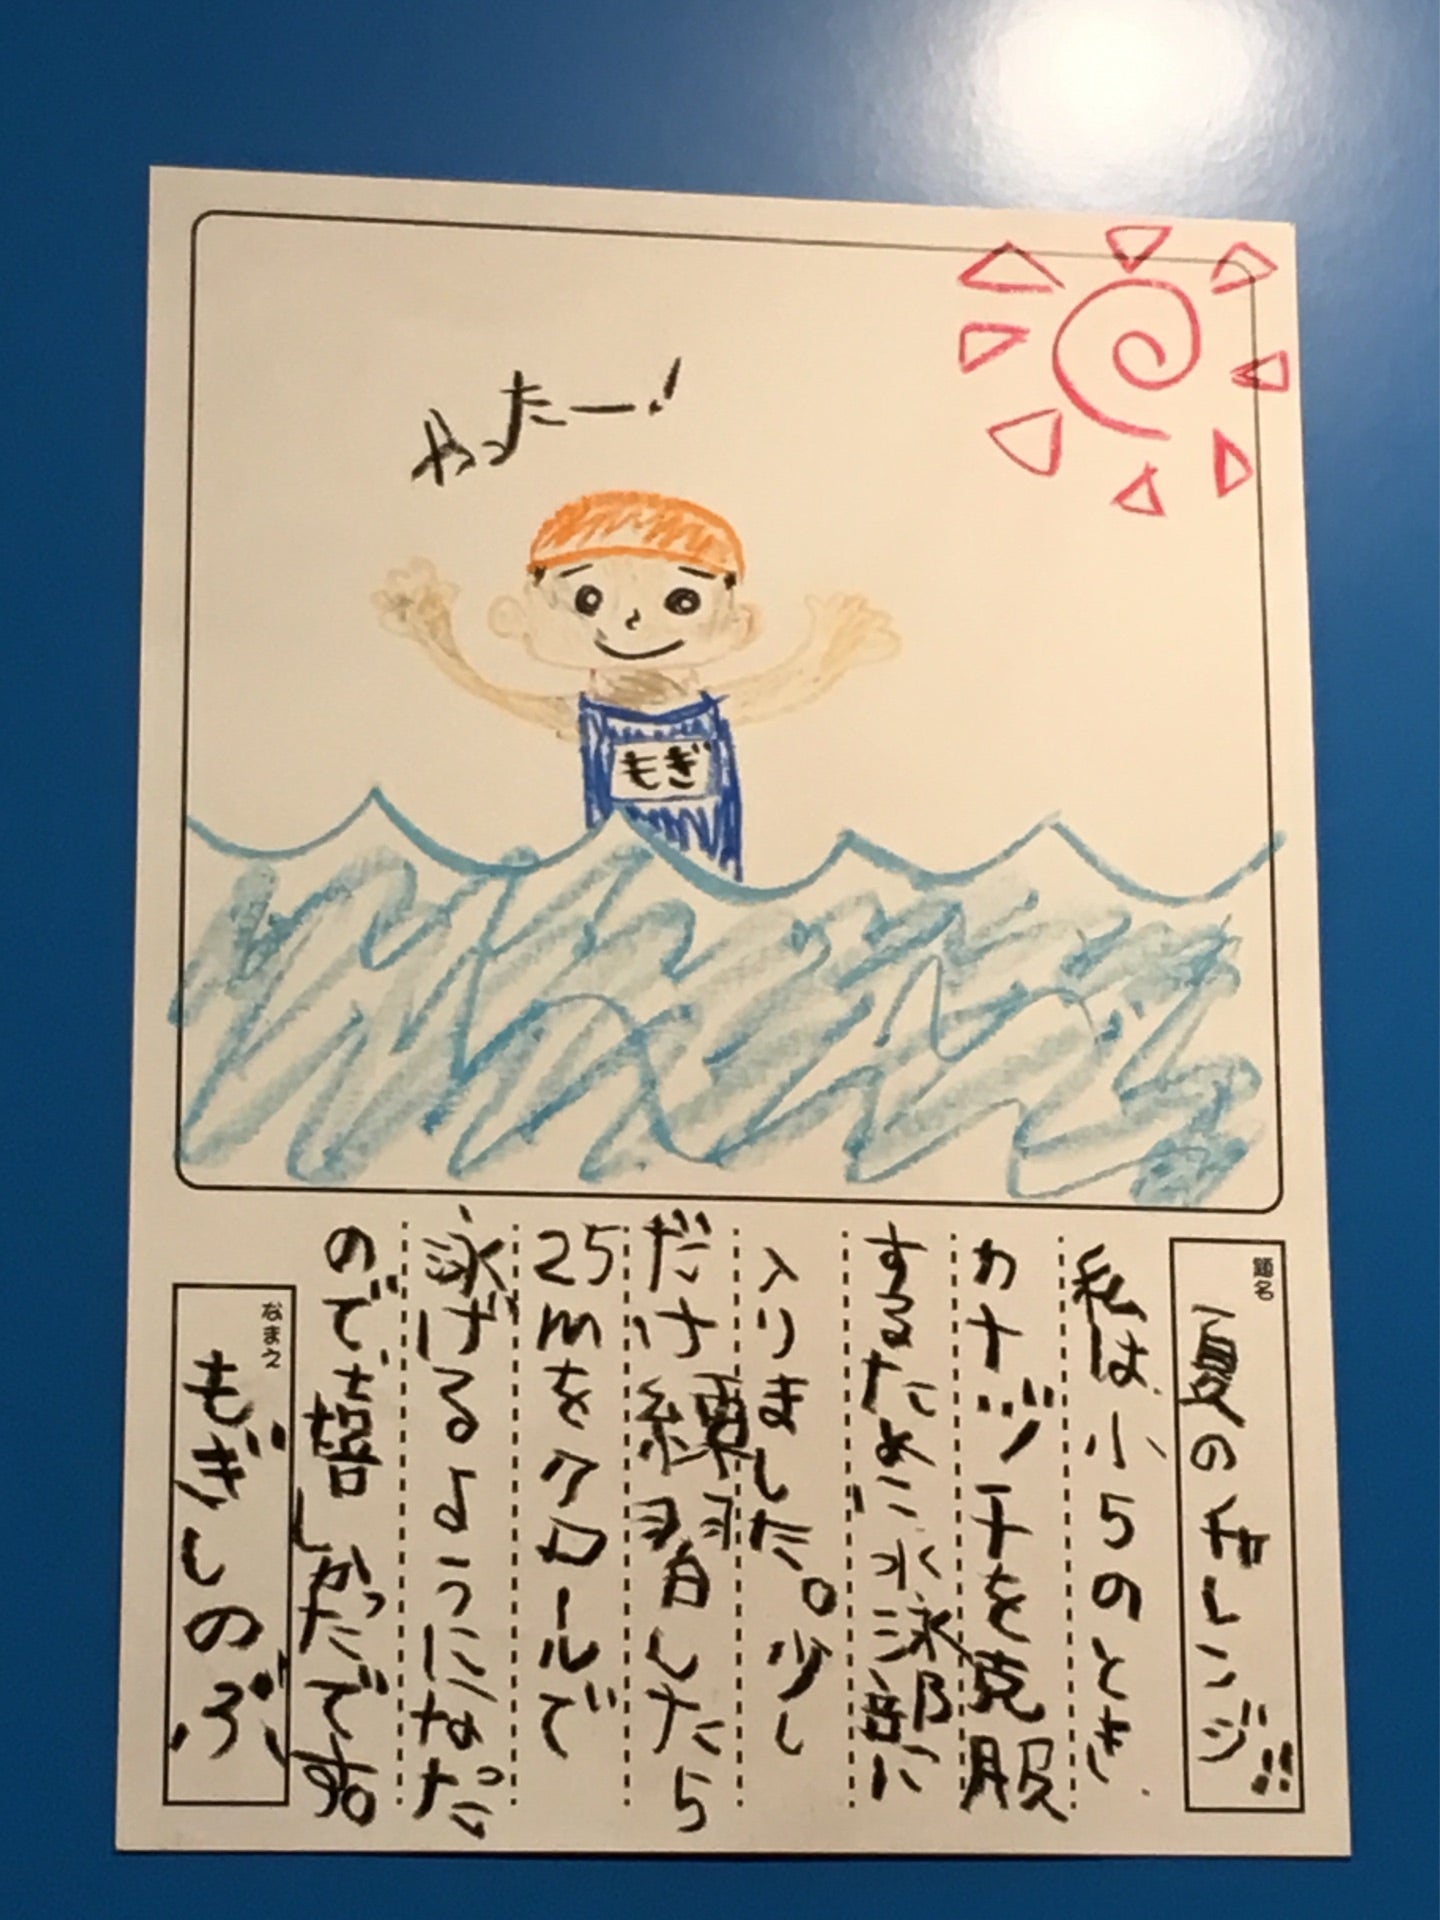 やったー！
もぎ
題名
夏のチャレンジ!!
私は小5のとき
カナヅチを克服
するために水泳部に
入りました。少し
だけ練習したら
25mをクロールで
泳げるようになった
ので嬉しかったです。
なまえ
もぎしのぶ